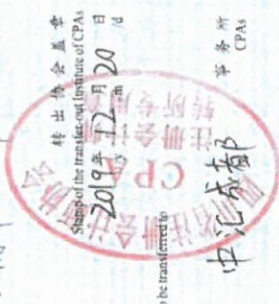 转出协会盖章
Stamp of the transfer-out Institute of CPAs
2019年12月20日
/y /m /d
be transferred to
中汇成都 事务所
CPAs
注册会计师协会
CPA
注册会计师
转所专用章